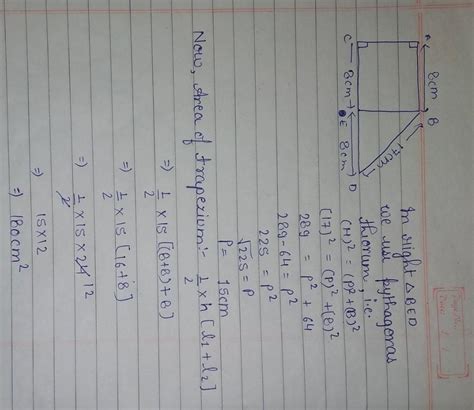 A 8cm B
17cm
C 8cm E 8cm D
In right △BED
we use pythagoras
thiorum, i.e.
(H)² = (P)²+(B)²
(17)² = (P)²+(8)²
289 = P² + 64
289-64 = P²
225 = P²
√225 = P
P= 15cm
Now, Area of trapezium:- 1/2 × h [l₁ + l₂]
⇒ 1/2 × 15 [(8+8)+8]
⇒ 1/2 × 15 [16+8]
⇒ 1/2 × 15 × 24 12
⇒ 15×12
⇒ 180cm²